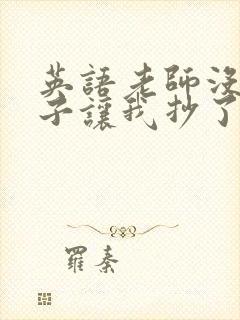 英語老師沒
子讓我抄了
羅秦